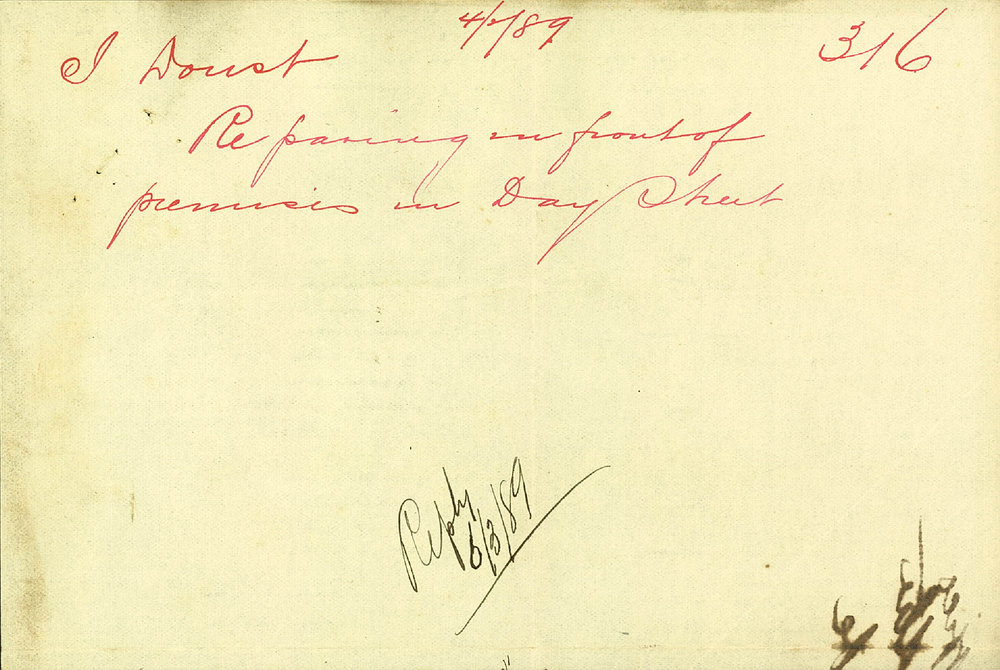 4/3/89
I Doust 316
Re paving in front of
premises in Day Street
Reply
6/3/89